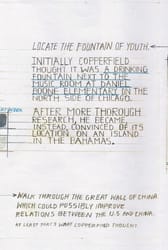 LOCATE THE FOUNTAIN OF YOUTH.
INITIALLY, COPPERFIELD
THOUGHT IT WAS A DRINKING
FOUNTAIN NEXT TO THE
MUSIC ROOM AT DANIEL
BOONE ELEMENTARY IN THE
NORTH SIDE OF CHICAGO.
AFTER MORE THOROUGH
RESEARCH, HE BECAME
INSTEAD, CONVINCED OF ITS
LOCATION ON AN ISLAND
IN THE BAHAMAS.
WALK THROUGH THE GREAT WALL OF CHINA
WHICH COULD POSSIBLY IMPROVE
RELATIONS BETWEEN THE U.S AND CHINA.
AT LEAST THAT'S WHAT COPPERFIELD THOUGHT.